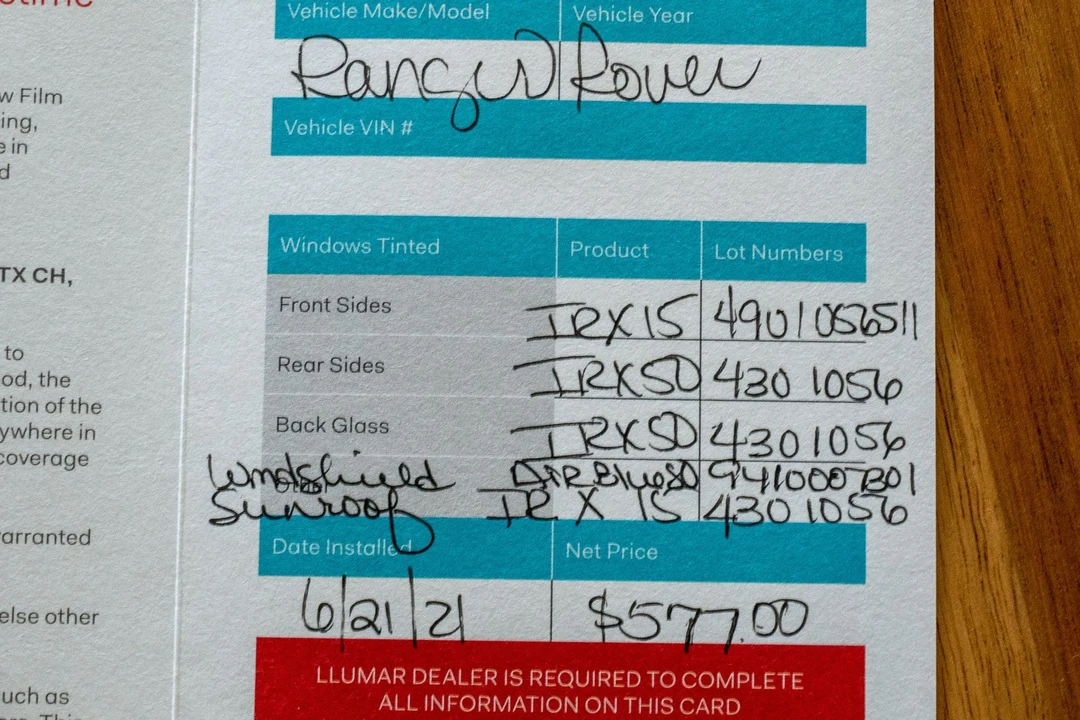 w Film
ing,
e in
d
TX CH,
to
od, the
tion of the
ywhere in
coverage
arranted
else other
uch as
Vehicle Make/Model Vehicle Year
Range Rover
Vehicle VIN #
Windows Tinted Product Lot Numbers
Front Sides IRX15 4901056511
Rear Sides IRX50 4301056
Back Glass IRX50 4301056
Windshield AIRBlue80 941000TB01
Sunroof IRX 15 4301056
Date Installed Net Price
6/21/21 $577.00
LLUMAR DEALER IS REQUIRED TO COMPLETE
ALL INFORMATION ON THIS CARD